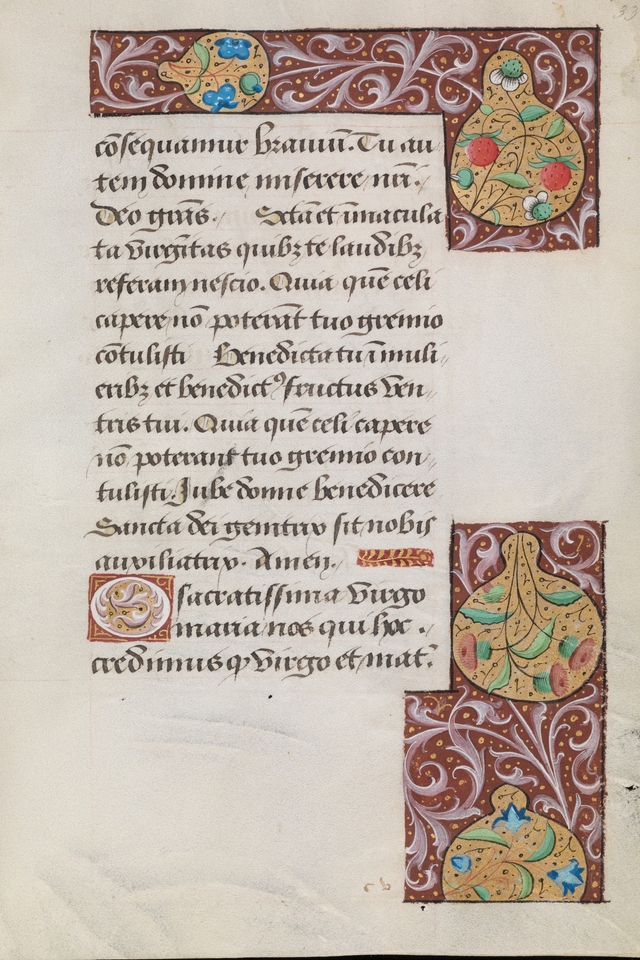 cōsequamur brauiū. Tu au
tem domine miserere nr̄i.
Deo grās. Sctā et īmacula
ta virgītas quibz te laudibz
referam nescio. Quia quē celi
capere nō poterāt tuo gremio
cōtulisti Benedicta tu ī muli-
eribz et benedictꝰ fructus ven-
tris tui. Quia quē celi capere
nō poterant tuo gremio con-
tulisti. Jube domne benedicere
Sancta dei genitrix sit nobis
auxiliatrix. Amen.
O sacratissima virgo
maria nos qui hoc .
credimus ꝙ virgo et mat̄.